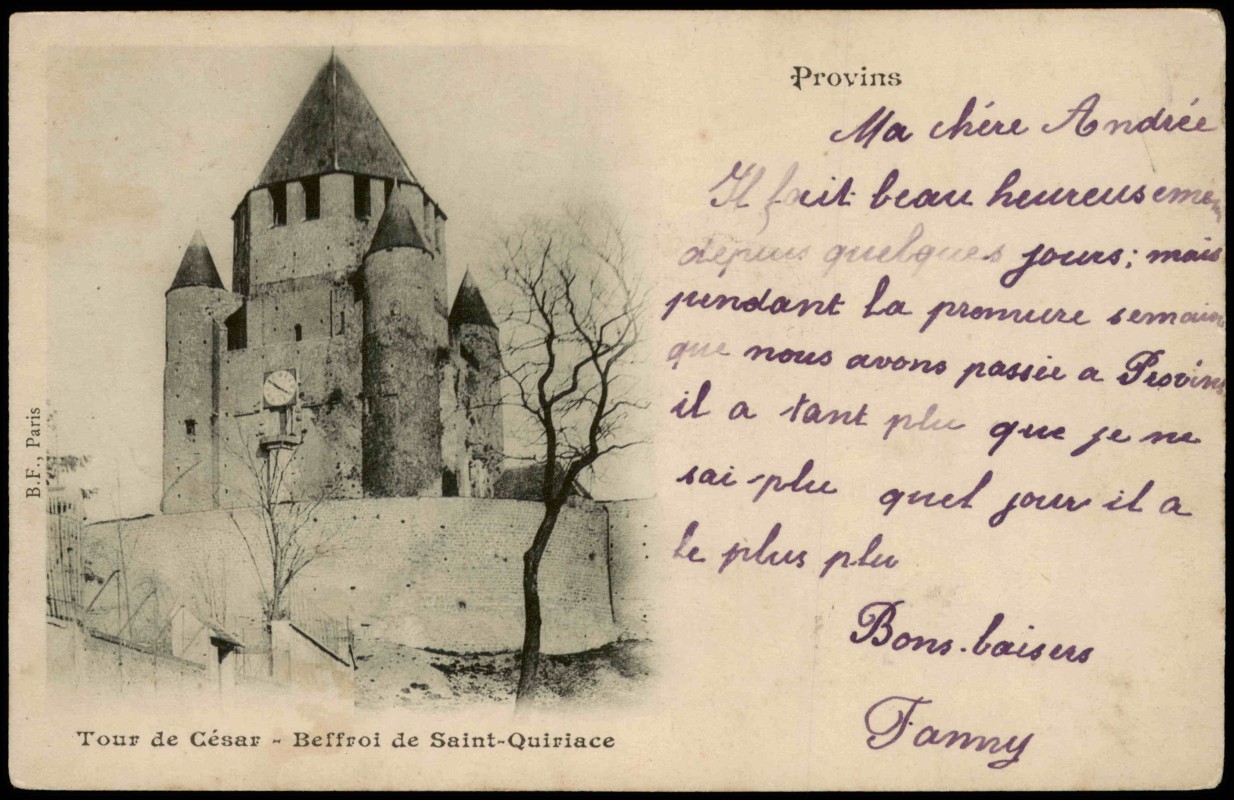 Provins
Ma chére Andrée
Il fait beau heureusement
depuis quelques jours; mais
pendant la premiere semaine
que nous avons passée a Provins
il a tant plu que je ne
sai plu quel jour il a
le plus plu
Bons baisers
Fanny
B.F., Paris
Tour de César - Beffroi de Saint-Quiriace